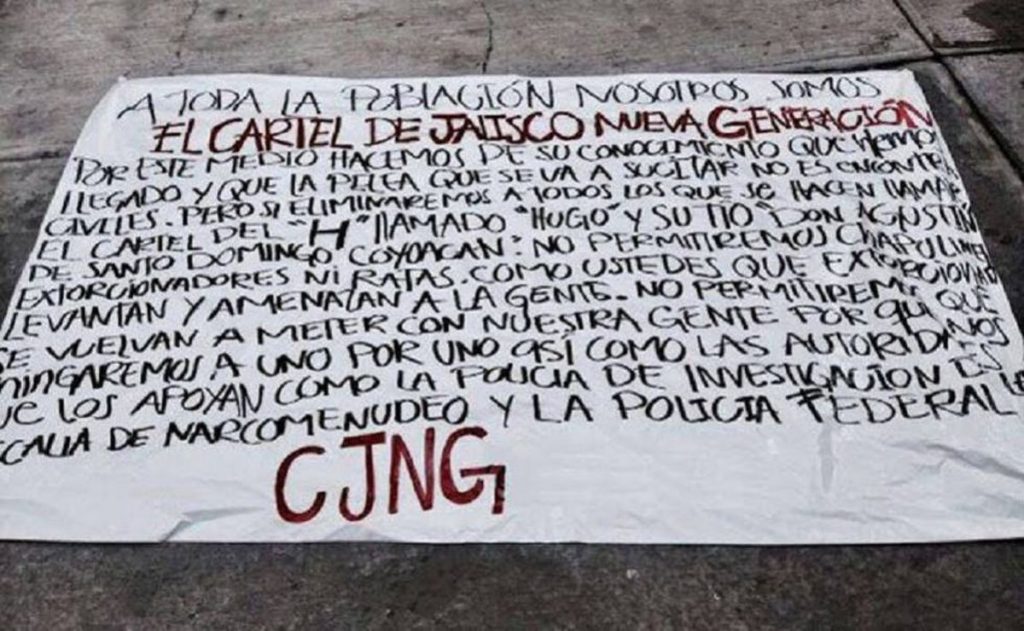 A TODA LA POBLACIÓN NOSOTROS SOMOS
EL CARTEL DE JALISCO NUEVA GENERACIÓN
POR ESTE MEDIO HACEMOS DE SU CONOCIMIENTO QUE HEMO
LLEGADO Y QUE LA PELEA QUE SE VA A SUCITAR NO ES ENCONTRA
CIVILES. PERO SI ELIMINAREMOS A TODOS LOS QUE SE HACEN LLAMAR
EL CARTEL DEL "H" LLAMADO "HUGO" Y SU TIO "DON AGUSTIN
DE SANTO DOMINGO COYOACAN: NO PERMITIREMOS CHAPULINES
EXTORCIONADORES NI RATAS. COMO USTEDES QUE EXTORCIONAN
LEVANTAN Y AMENAZAN A LA GENTE. NO PERMITIREM QUE
SE VUELVAN A METER CON NUESTRA GENTE POR QUE NOS
A UNO POR UNO ASÍ COMO LAS AUTORIDADES
QUE LOS APOYAN COMO LA POLICIA DE INVESTIGACION
DE NARCOMENUDEO Y LA POLICIA FEDERAL
CJNG